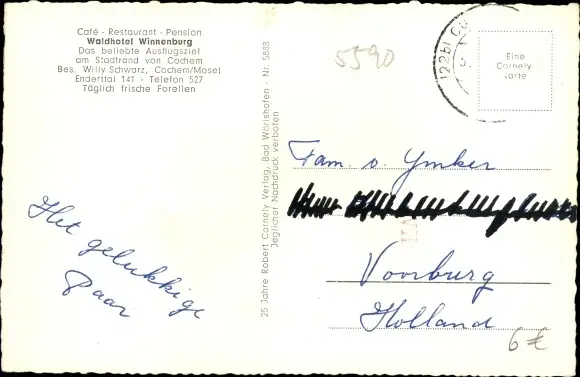 Café - Restaurant - Pension
Waldhotel Winnenburg
Das beliebte Ausflugsziel
am Stadtrand von Cochem
Bes. Willy Schwarz, Cochem/Mosel
Enderttal 141 - Telefon 527
Täglich frische Forellen
5590
(22b) CO
Eine
Cornely
Karte
25 Jahre Robert Cornely Verlag, Bad Wörishofen - Nr. 5833
Jeglicher Nachdruck verboten
Fam. v. Ymker
Voorburg
Holland
Het gelukkige
Paar
6 €